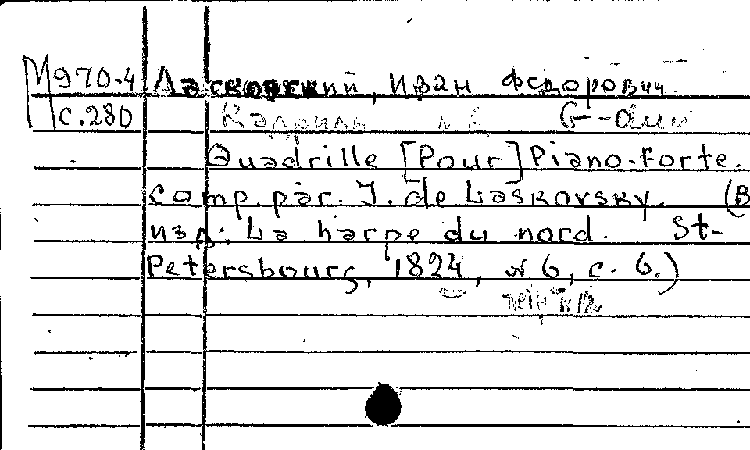 М970-4 Ласковский, Иван Федорович.
с.280 Кадриль G-dur
Quadrille [Pour] Piano-Forte.
comp. par. J. de Laskovsky. (В
изд: La harpe du nord. St-
Petersbourg, 1824, № 6, с. 6.)